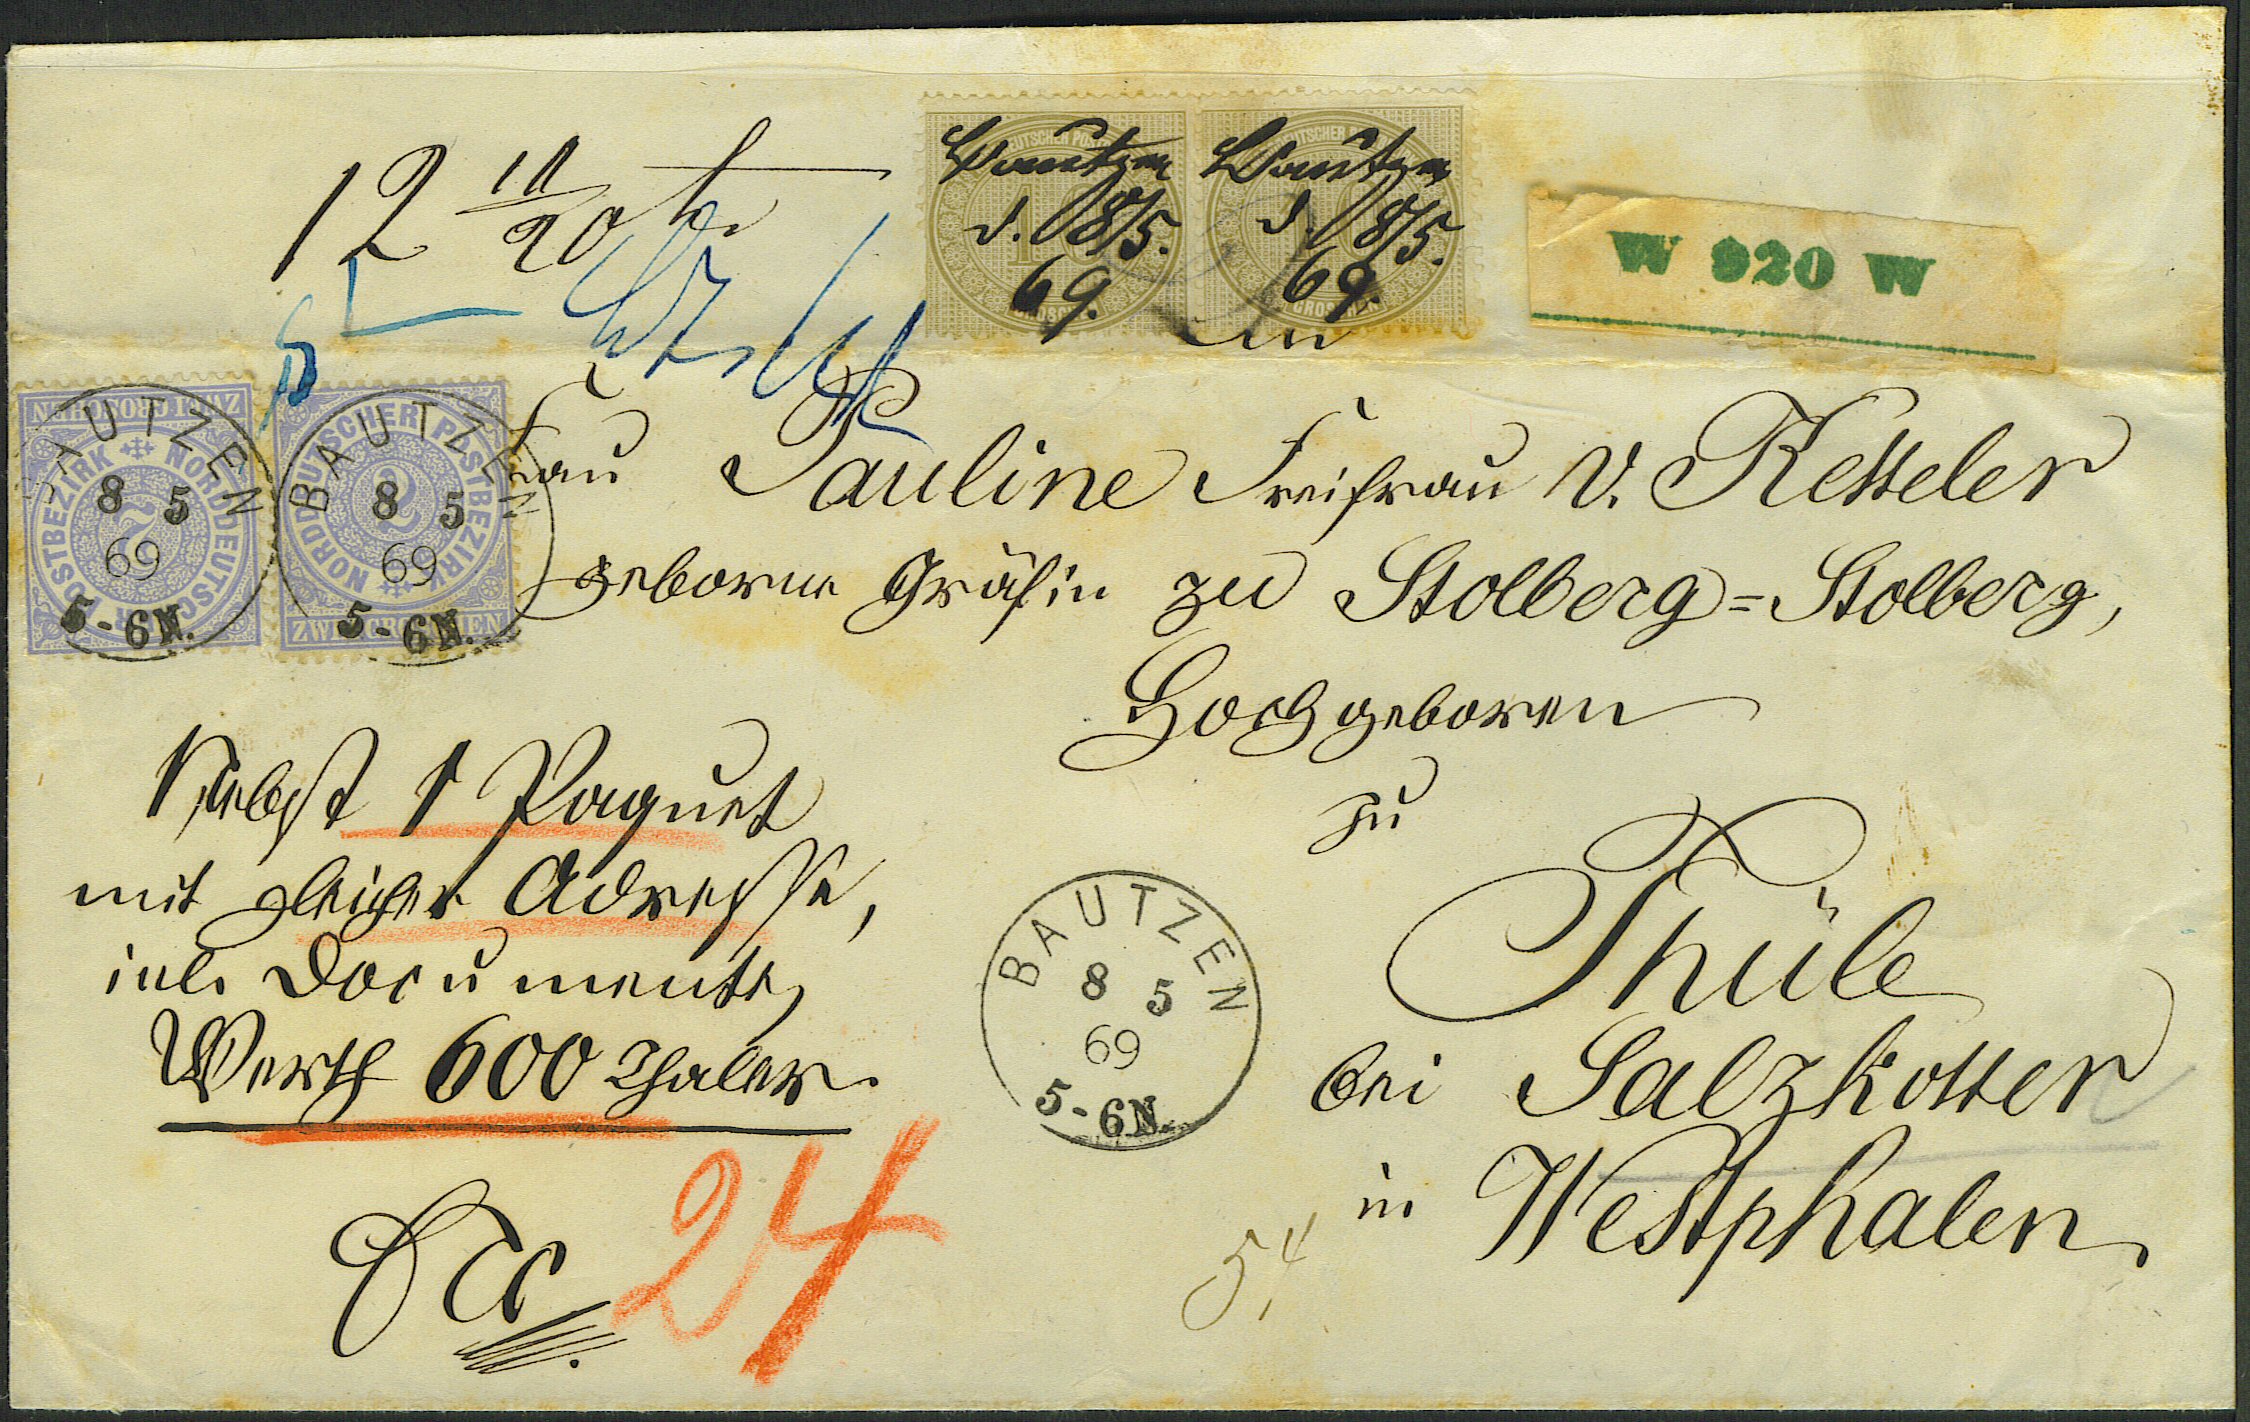 12 11/20
Bautzen
d. 8/5.
69.
Bautzen
d. 8/5.
69.
W 920 W
An
Frau Pauline Freifrau v. Ketteler
geborne Gräfin zu Stolberg=Stolberg,
Hochgeboren
zu
Thüle
bei Salzkotten
in Westphalen
ZWEI GROSCHEN
NORDDEUTSCHER POSTBEZIRK
2
BAUTZEN
8 5
69
5-6N.
NORDDEUTSCHER POSTBEZIRK
2
ZWEI GROSCHEN
BAUTZEN
8 5
69
5-6N.
Nebst 1 Paquet
mit gleicher Adresse,
incl. Documente,
Werth 600 Thaler.
24
BAUTZEN
8 5
69
5-6N.